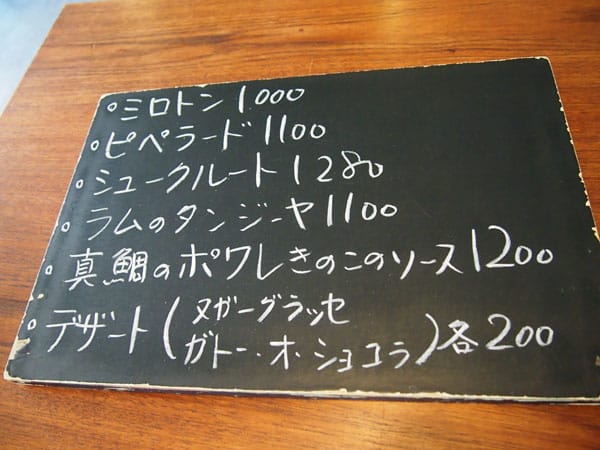 ○ミロトン 1000
○ピペラード 1100
○シュークルート 1280
○ラムのタンジーヤ 1100
○真鯛のポワレきのこのソース 1200
○デザート(ヌガーグラッセ
ガトー・オ・ショコラ)各200